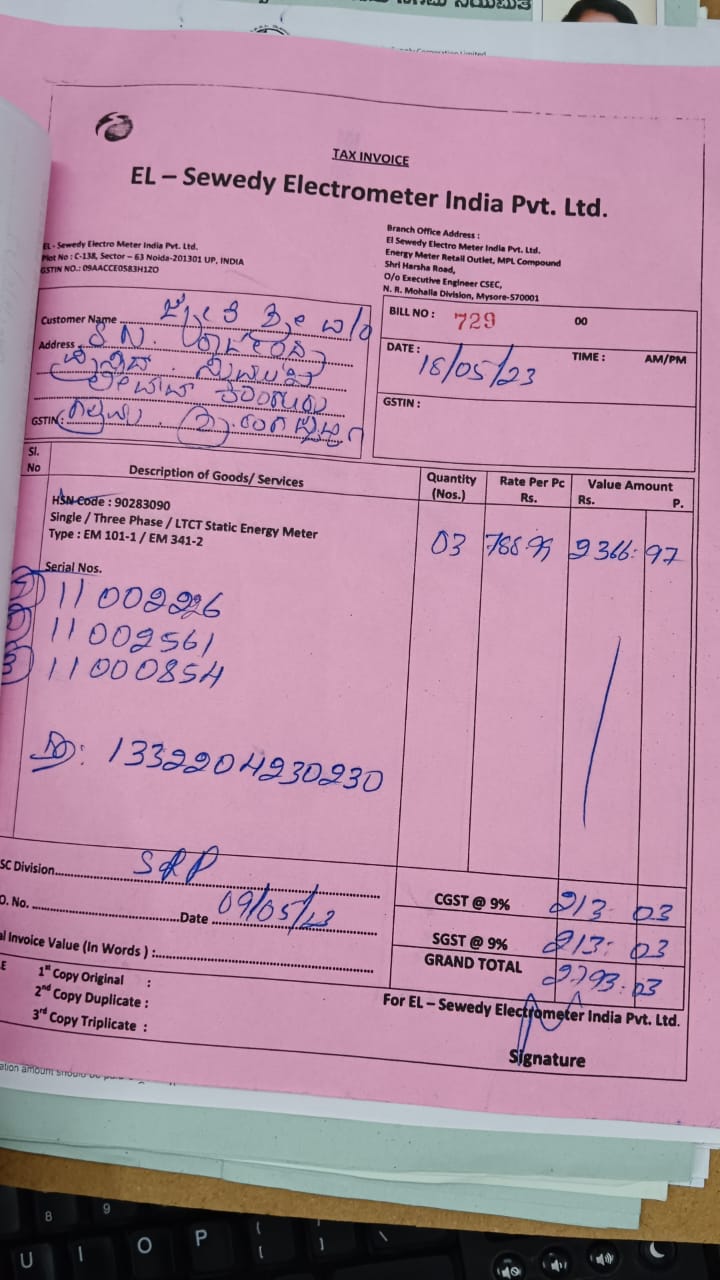 TAX INVOICE
EL – Sewedy Electrometer India Pvt. Ltd.
EL - Sewedy Electro Meter India Pvt. Ltd.
Plot No : C-138, Sector – 63 Noida-201301 UP, INDIA
GSTIN NO.: 09AACCE0583H1ZO
Branch Office Address :
El Sewedy Electro Meter India Pvt. Ltd.
Energy Meter Retail Outlet, MPL Compound
Shri Harsha Road,
O/o Executive Engineer CSEC,
N. R. Mohalla Division, Mysore-570001
Customer Name
Address
GSTIN:
BILL NO : 729 00
DATE : 18/05/23 TIME : AM/PM
GSTIN :
Sl. No Description of Goods/ Services Quantity (Nos.) Rate Per Pc Rs. Value Amount Rs. P.
HSN Code : 90283090
Single / Three Phase / LTCT Static Energy Meter
Type : EM 101-1 / EM 341-2
03 788.99 2366: 97
Serial Nos.
1 11002226
2 11002561
3 11000854
DD: 1332204230230
SC Division SRP
O. No. Date 09/05/23
al Invoice Value (In Words ) :
CGST @ 9% 213. 03
SGST @ 9% 213: 03
GRAND TOTAL 2793.03
E 1st Copy Original :
2nd Copy Duplicate :
3rd Copy Triplicate :
For EL – Sewedy Electrometer India Pvt. Ltd.
Signature
8 9
U I O P